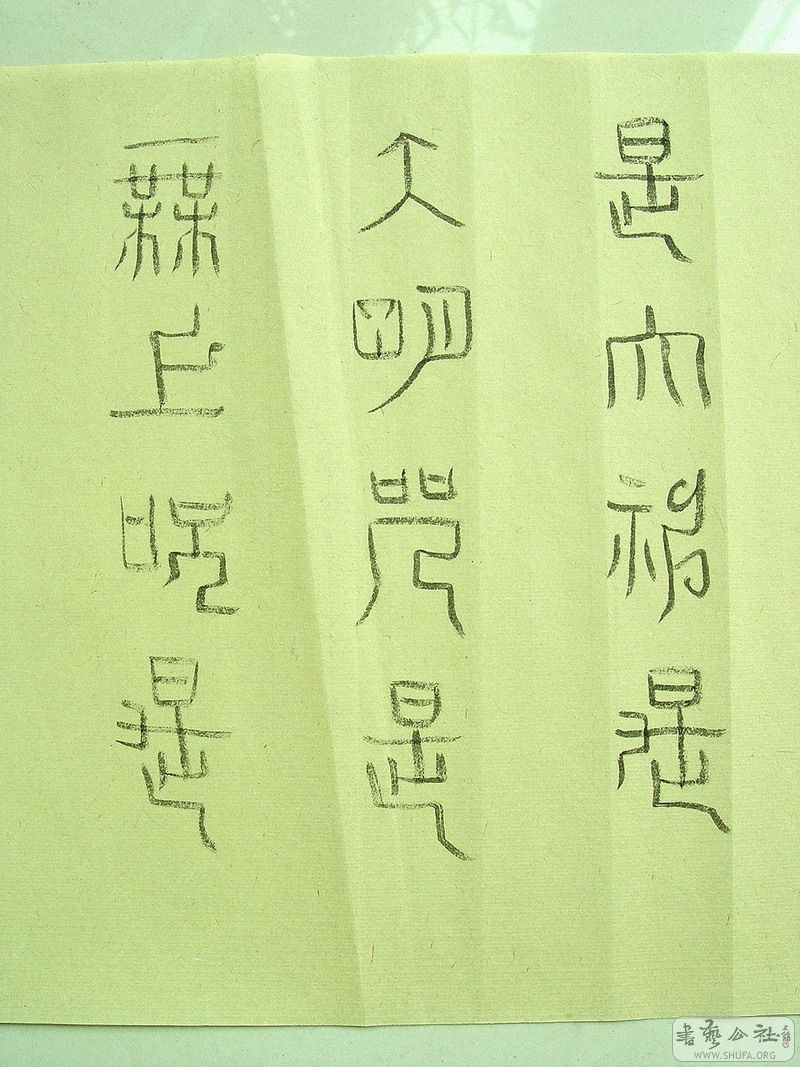 是大神是
大明咒是
無上咒是
書藝公社
WWW.SHUFA.ORG